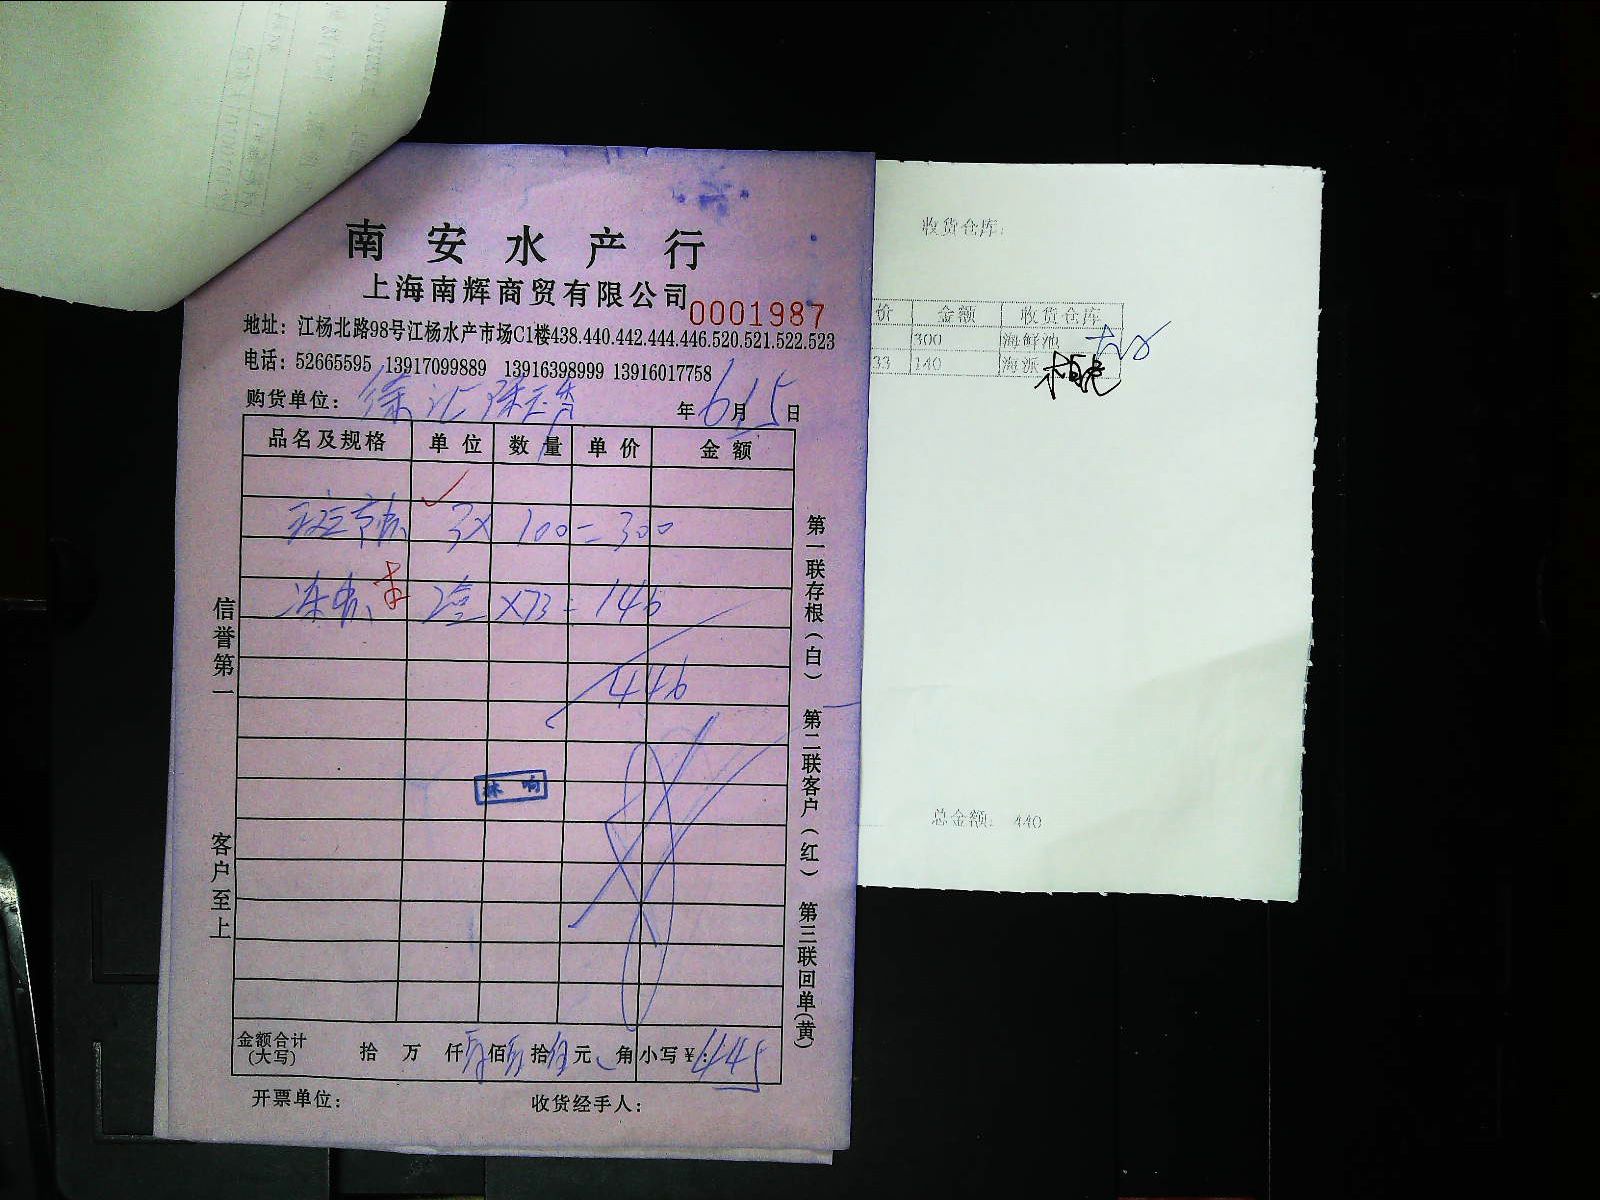 南安水产行
上海南辉商贸有限公司
0001987
地址：江杨北路98号江杨水产市场C1楼438.440.442.444.446.520.521.522.523
电话：52665595 13917099889 13916398999 13916017758
购货单位：徐汇 年6月15日
品名及规格 单位 数量 单价 金额
3X 100=300
2盒 X73=146
446
林响
金额合计(大写) 拾 万 仟肆佰肆拾伍元 角小写¥：445
开票单位： 收货经手人：
信誉第一 客户至上
第一联存根（白） 第二联客户（红） 第三联回单(黄)
收货仓库：
价 金额 收货仓库
300 海鲜池
33 140 海派
总金额： 440